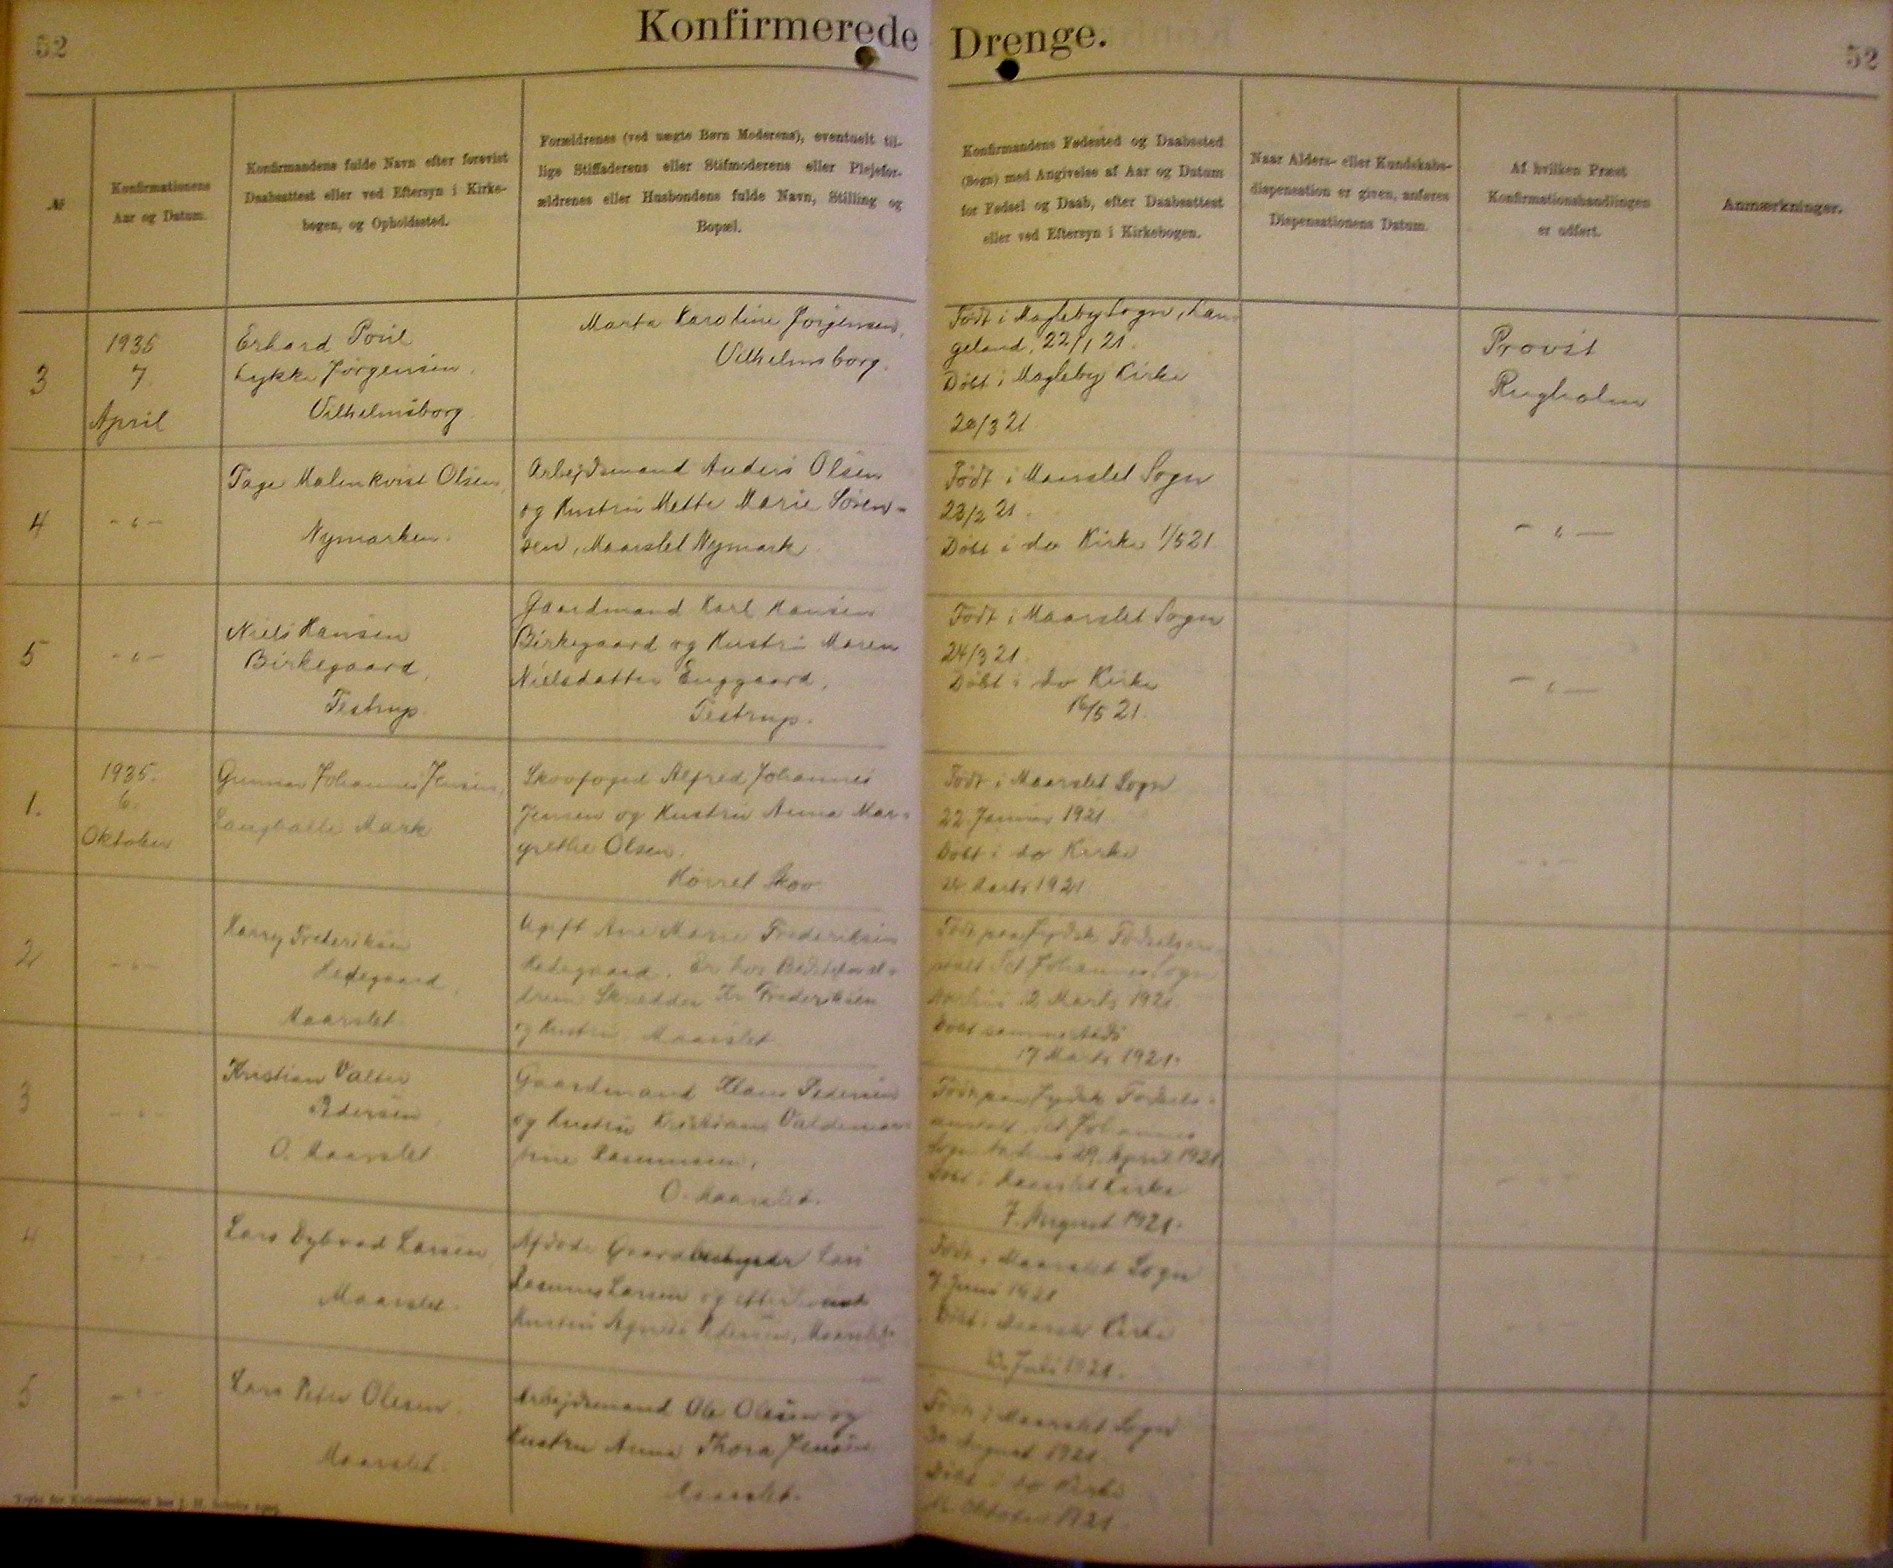 52
Konfirmerede Drenge.
52
№
Konfirmationens
Aar og Datum.
Konfirmandens fulde Navn efter forevist
Daabsattest eller ved Eftersyn i Kirke-
bogen, og Opholdssted.
Forældrenes (ved uægte Børn Moderens), eventuelt til-
lige Stiffaderens eller Stifmoderens eller Plejefor-
ældrenes eller Husbondens fulde Navn, Stilling og
Bopæl.
Konfirmandens Fødested og Daabssted
(Sogn) med Angivelse af Aar og Datum
for Fødsel og Daab, efter Daabsattest
eller ved Eftersyn i Kirkebogen.
Naar Alders- eller Kundskabs-
dispensation er given, anføres
Dispensationens Datum.
Af hvilken Præst
Konfirmationshandlingen
er udført.
Anmærkninger.
3
1935
7.
April
Erhard Poul
Lykke Jørgensen,
Vilhelmsborg.
Marta Karoline Jørgensen,
Vilhelmsborg.
Født i Magleby Sogn, Lan-
geland, 22/1 21.
Døbt i Magleby Kirke
20/3 21
Provst
Rugholm
4
-"-
Tage Malmkvist Olsen,
Nymarken.
Arbejdsmand Anders Olsen
og Hustru Mette Marie Søren-
sen, Maarslet Nymark
Født i Maarslet Sogn
23/2 21.
Døbt i do Kirke 1/5 21
-"-
5
-"-
Niels Hansen
Birkegaard,
Testrup.
Gaardmand Karl Hansen
Birkegaard og Hustru Maren
Nielsdatter Enggaard,
Testrup.
Født i Maarslet Sogn
24/3 21.
Døbt i do Kirke
16/5 21.
-"-
1.
1935.
6.
Oktober
Gunnar Johannes Jensen,
Langballe Mark
Skovfoged Alfred Johannes
Jensen og Hustru Anna Mar-
grethe Olsen.
Hørret Skov
Født i Maarslet Sogn
22 Januar 1921
Døbt i do Kirke
Marts 1921
-"-
2
-"-
Harry Frederiksen
Hedegaard,
Maarslet
Ugift Ane Marie Frederiksen
Hedegaard. Er hos Bedsteforæl-
drene Skrædder Kr. Frederiksen
og Hustru Maarslet
Født paa Jydsk Fødselsan-
stalt Sct Johannes Sogn
Aarhus 2 Marts 1921.
Døbt sammesteds
17 Marts 1921.
-"-
3
-"-
Kristian Valter
Pedersen,
O. Maarslet
Gaardmand Hans Pedersen
og Hustru Kristiane Valdemar-
sine Rasmussen,
O. Maarslet.
Født paa Jydsk Fødsels-
anstalt Sct Johannes
Sogn Aarhus 29. April 1921.
Døbt i Maarslet Kirke
7. August 1921.
-"-
4
-"-
Lars Dybvad Larsen
Maarslet.
Afdøde Gaardbestyrer Lars
Rasmus Larsen og efterlevende
Hustru Agnete Pedersen, Maarslet.
Født i Maarslet Sogn
7 Juni 1921
Døbt i Maarslet Kirke
Juli 1921.
-"-
5
-"-
Lars Peter Olesen.
Maarslet.
Arbejdsmand Ole Olesen og
Hustru Anna Thora Jensen
Maarslet.
Født i Maarslet Sogn
30 August 1921
Døbt i do Kirke
Oktober 1921
-"-